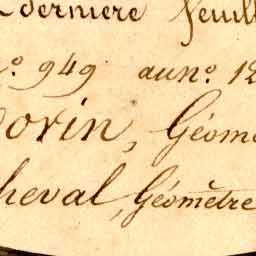 derniere feuill
º. 949 au nº. 12
orin, Géomè
heval, Géomètre